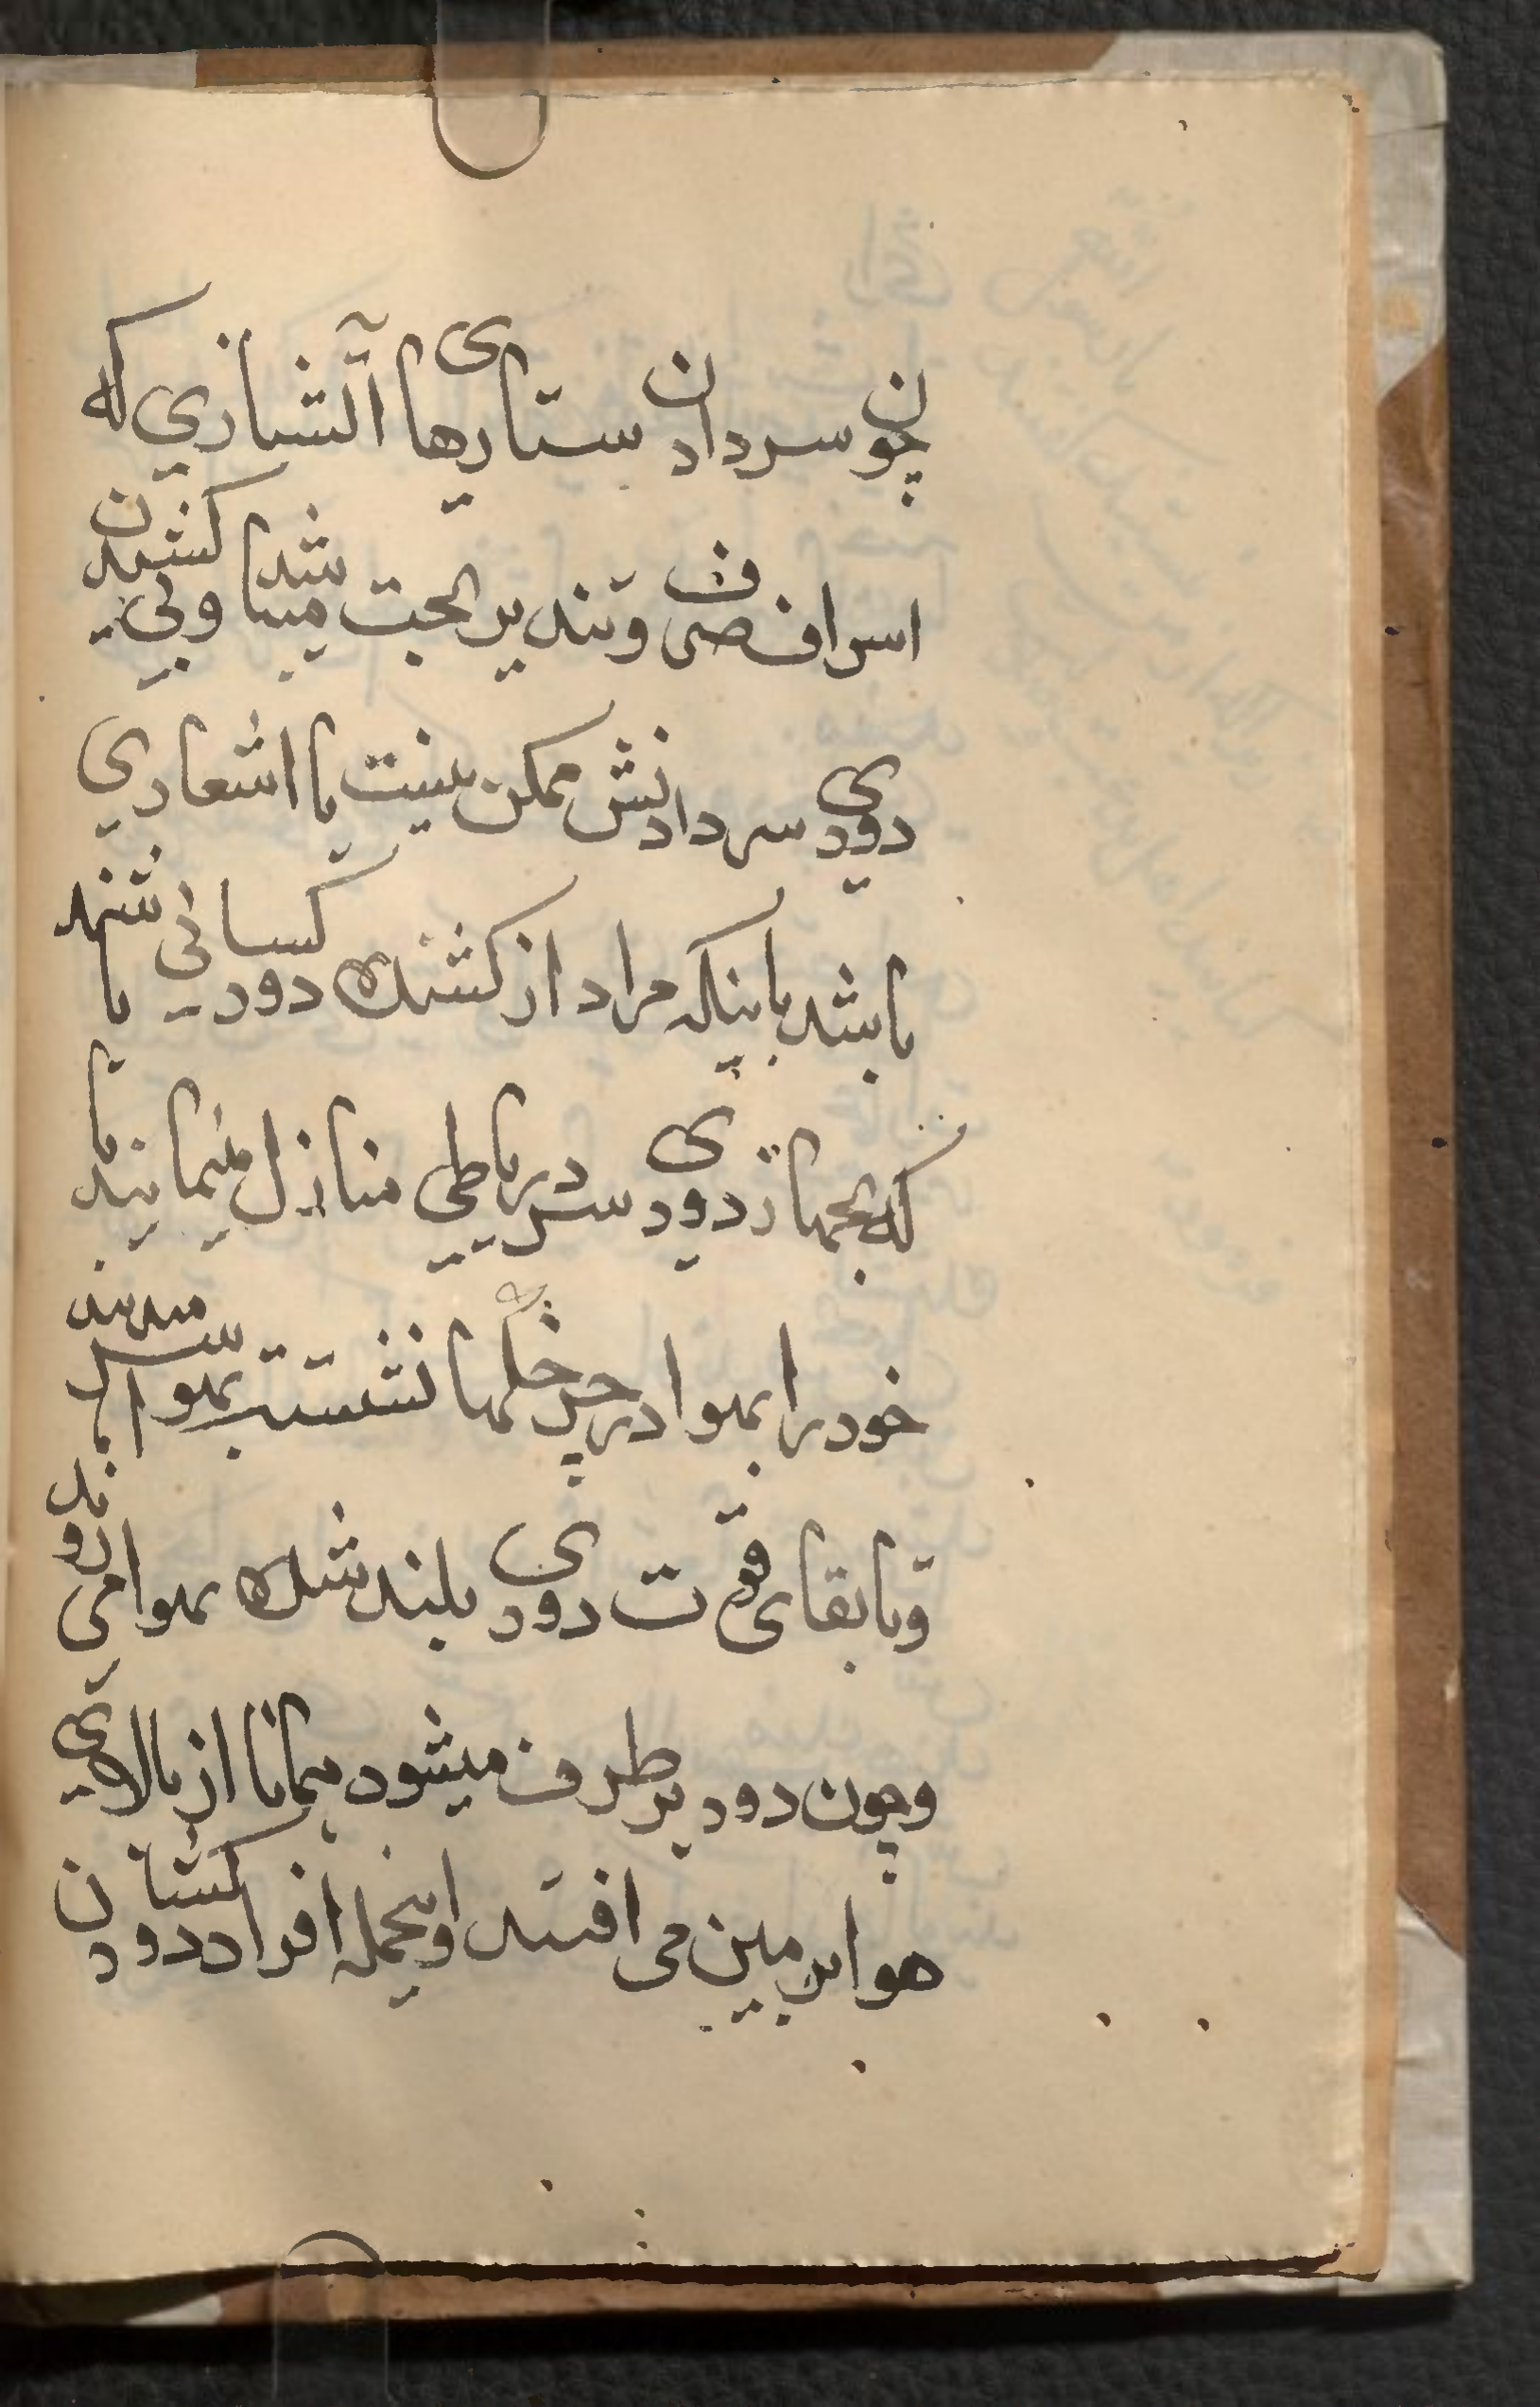 چون سردادن ستارهای آتشبازی که
اسراف صرف و تبذیر بحت میباشد و بی کشیدن
دودی سردادنش ممکن نیست یا اشعاری
باشد باینکه مراد از کشندهٔ دود کسانی باشند
که بجهاز دودی سر دریا طی منازل مینمایند یا
خود را بهوا در چرخکها نشسته بهوا سر میدهند
و تا بقای قوّت دودی بلند شده بهوا میروند
و چون دود بر طرف میشود همانا از بالای
هوا بزمین می افتد و اینجمله افراد دود کشانن